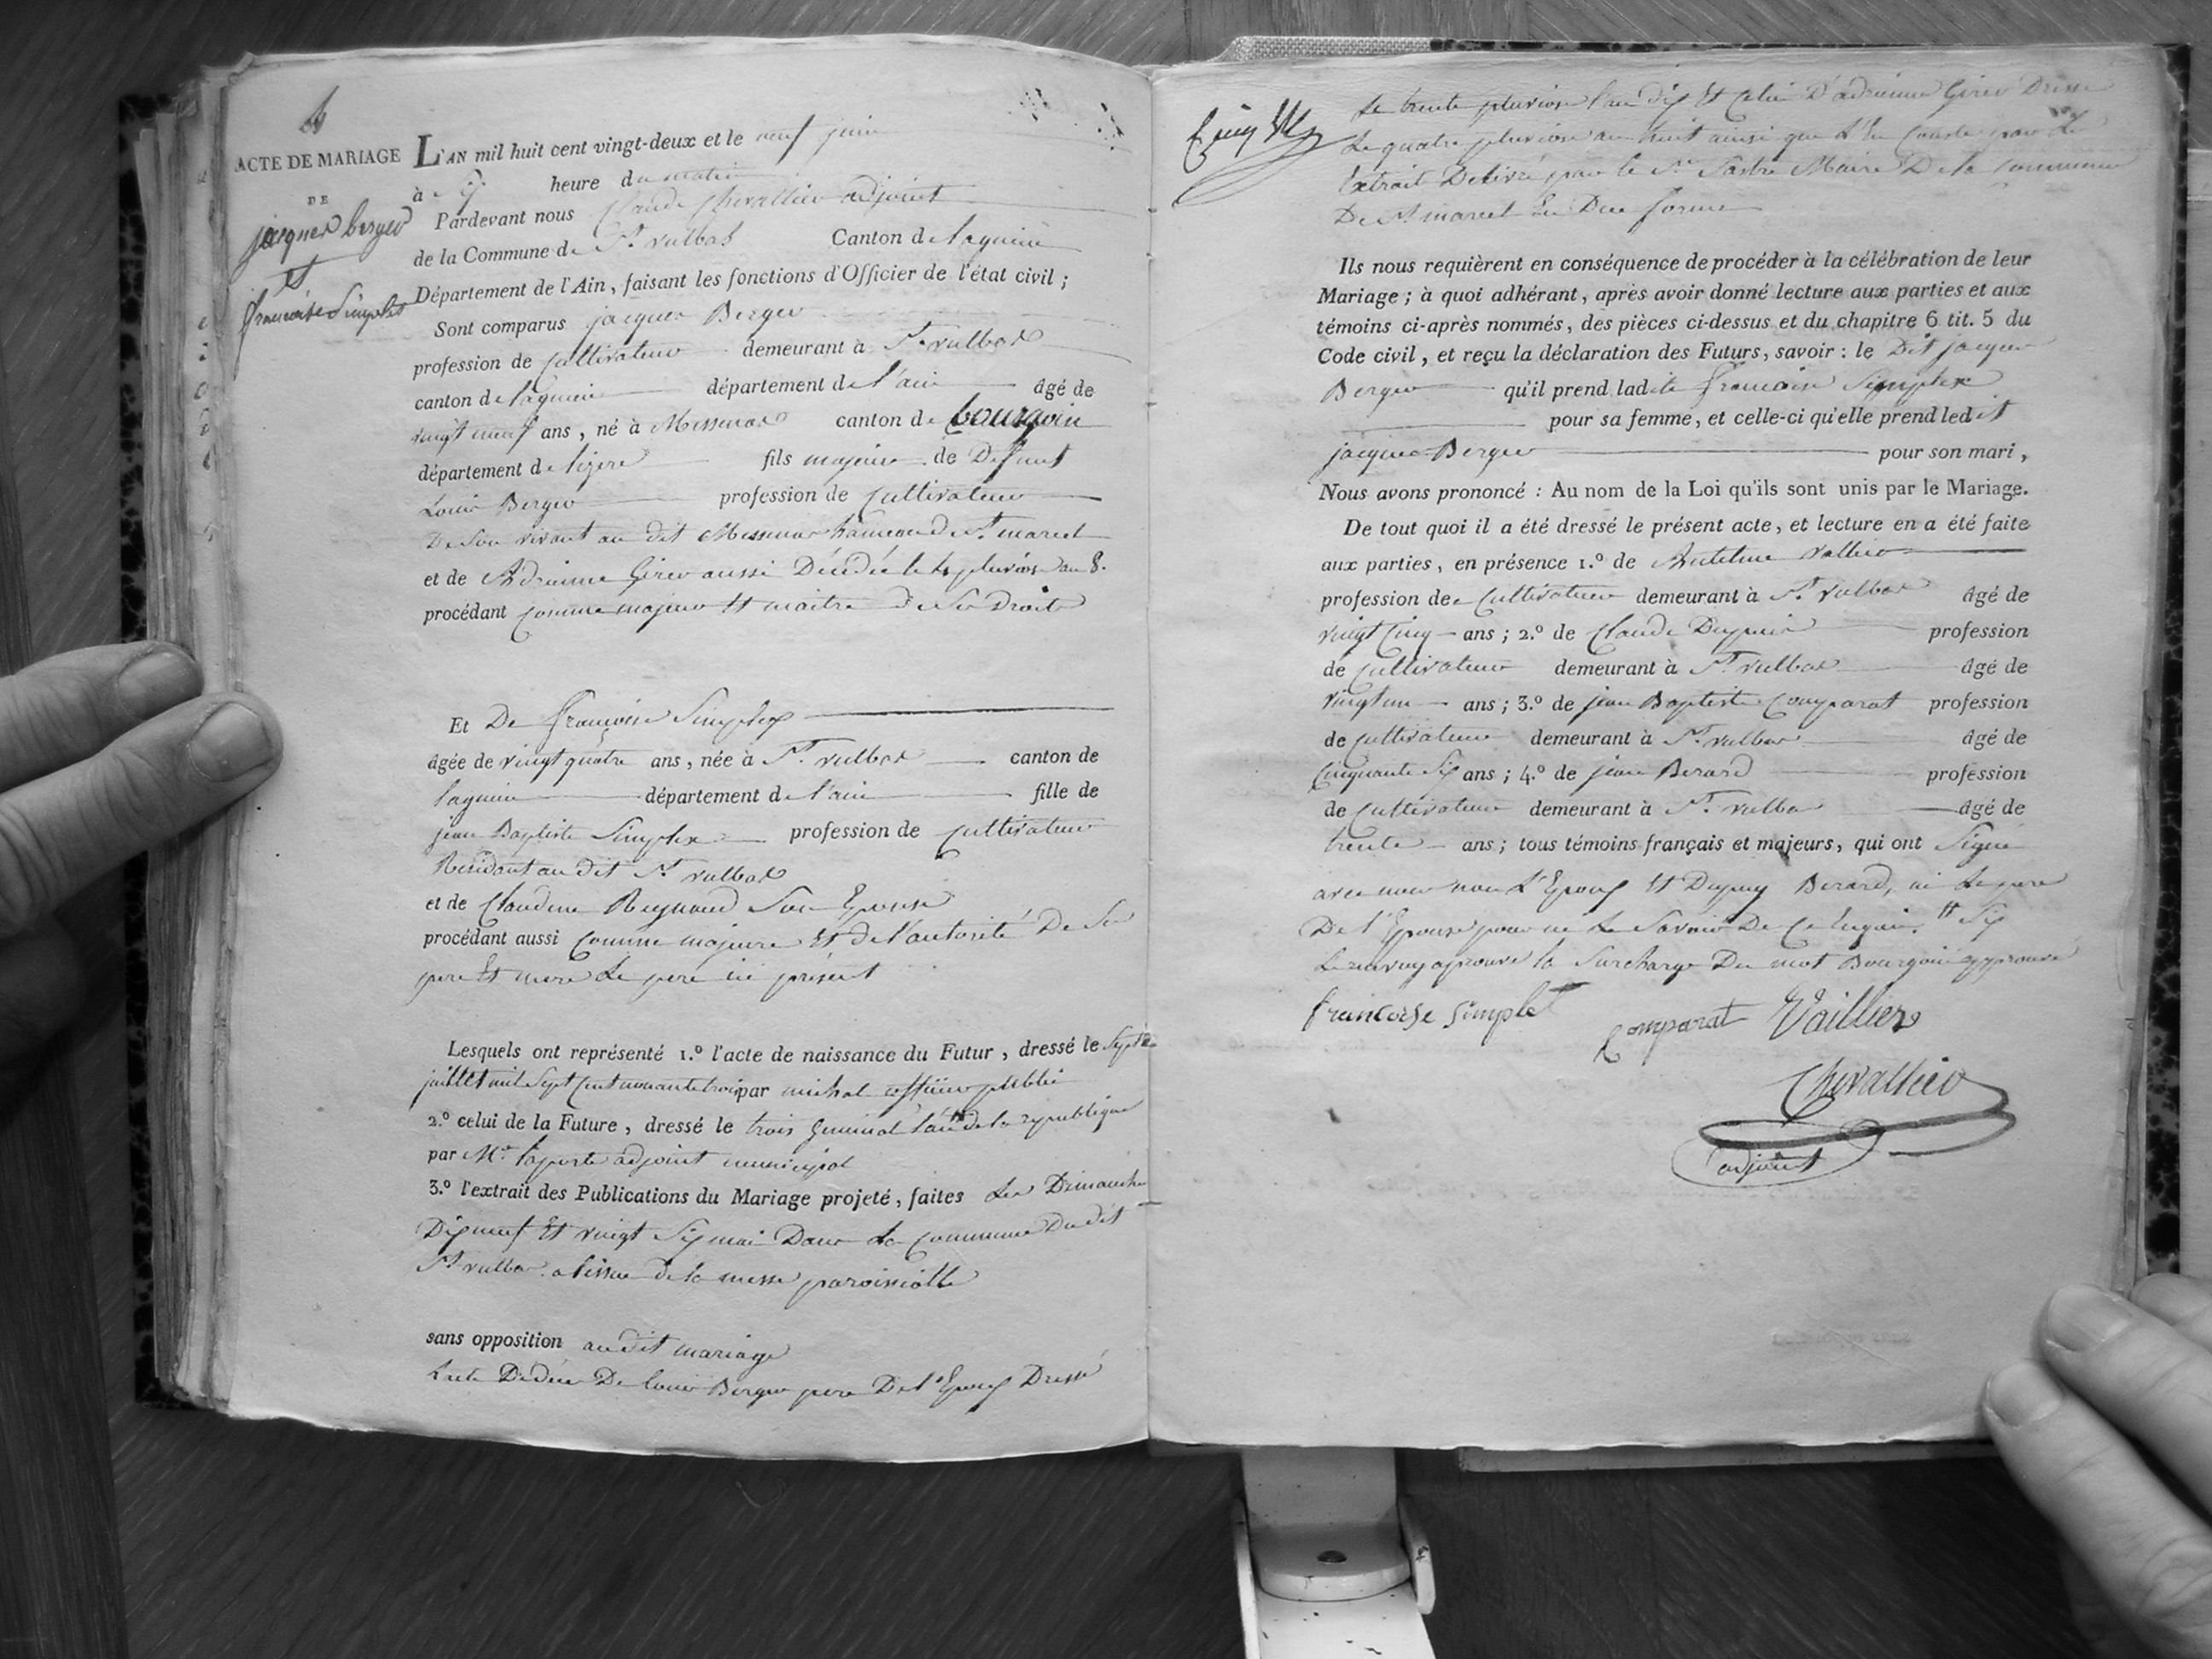 4
ACTE DE MARIAGE
DE
jacques berger
et
francoise Simplex
L'AN mil huit cent vingt-deux et le neuf juin
à heure du matin
Pardevant nous Claude Chevallier adjoint
de la Commune de St. vulbas Canton de lagnieu
Département de l'Ain, faisant les fonctions d'Officier de l'état civil ;
Sont comparus jacques Berger
profession de Cultivateur demeurant à St. vulbas
canton de lagnieu département de l'ain âgé de
vingt neuf ans, né à canton de bourgoin
département de lizere fils majeur de Defunt
Louis Berger profession de Cultivateur
De Son vivant au dit hameau de St. marcel
et de Adrienne Girer aussi Décédée le 4 pluviose an 8.
procédant comme majeur Et maitre de Ses Droits
Et De françoise Simplex
âgée de vingt quatre ans, née à St. vulbas canton de
lagnieu département de l'ain fille de
jean Baptiste Simplex profession de Cultivateur
Résidant au dit St. vulbas
et de Claudine Reynaud Son Epouse
procédant aussi Comme majeure Et de l'autorité De Ses
pere Et mere Le pere ici présent
Lesquels ont représenté 1.º l'acte de naissance du Futur, dressé le Sept
juillet mil Sept Cent nonante trois par michal officier public
2.º celui de la Future, dressé le trois Germinal l'an de la republique
par Mr. laporte adjoint municipal
3.º l'extrait des Publications du Mariage projeté, faites Les Dimanches
Dix neuf Et vingt Six mai Dans La Commune Du dit
St. vulbas a lissue de la messe paroissialle
sans opposition au dit mariage
Lacte Dédécés De louis Berger pere De l'Epoux Dressé
Le trente pluviose l'an dix Et Celui D'adrienne Girer Dressé
Le quatre pluviose an huit ainsi que L'on Conste par Les
Extrait Delivré par le Sr. Sastre Maire De la Commune
De St. marcel En Due forme
Ils nous requièrent en conséquence de procéder à la célébration de leur
Mariage ; à quoi adhérant, après avoir donné lecture aux parties et aux
témoins ci-après nommés, des pièces ci-dessus et du chapitre 6 tit. 5 du
Code civil, et reçu la déclaration des Futurs, savoir : le Dit jacques
Berger qu'il prend ladite françoise Simplex
pour sa femme, et celle-ci qu'elle prend ledit
jacques Berger pour son mari,
Nous avons prononcé : Au nom de la Loi qu'ils sont unis par le Mariage.
De tout quoi il a été dressé le présent acte, et lecture en a été faite
aux parties, en présence 1.º de Antelme Vallier
profession de Cultivateur demeurant à St. vulbas âgé de
vingt Cinq ans ; 2.º de Claude Dupuis profession
de Cultivateur demeurant à St. vulbas âgé de
vingt un ans ; 3.º de jean Baptiste Comparat profession
de Cultivateur demeurant à St. vulbas âgé de
Cinquante Six ans ; 4.º de jean Berard profession
de Cultivateur demeurant à St. vulbas âgé de
trente ans ; tous témoins français et majeurs, qui ont Signé
avec nous non L'Epoux Et Dupuy Berard, ni Le pere
De l'Epouse pour ne Le Savoir De Ce Enquis. Et Six
Le renvoy aprouvé la Surcharge Du mot Bourgoin approuvé
francoise Simplet
Comparat Vaillier
Chevallier
adjoint